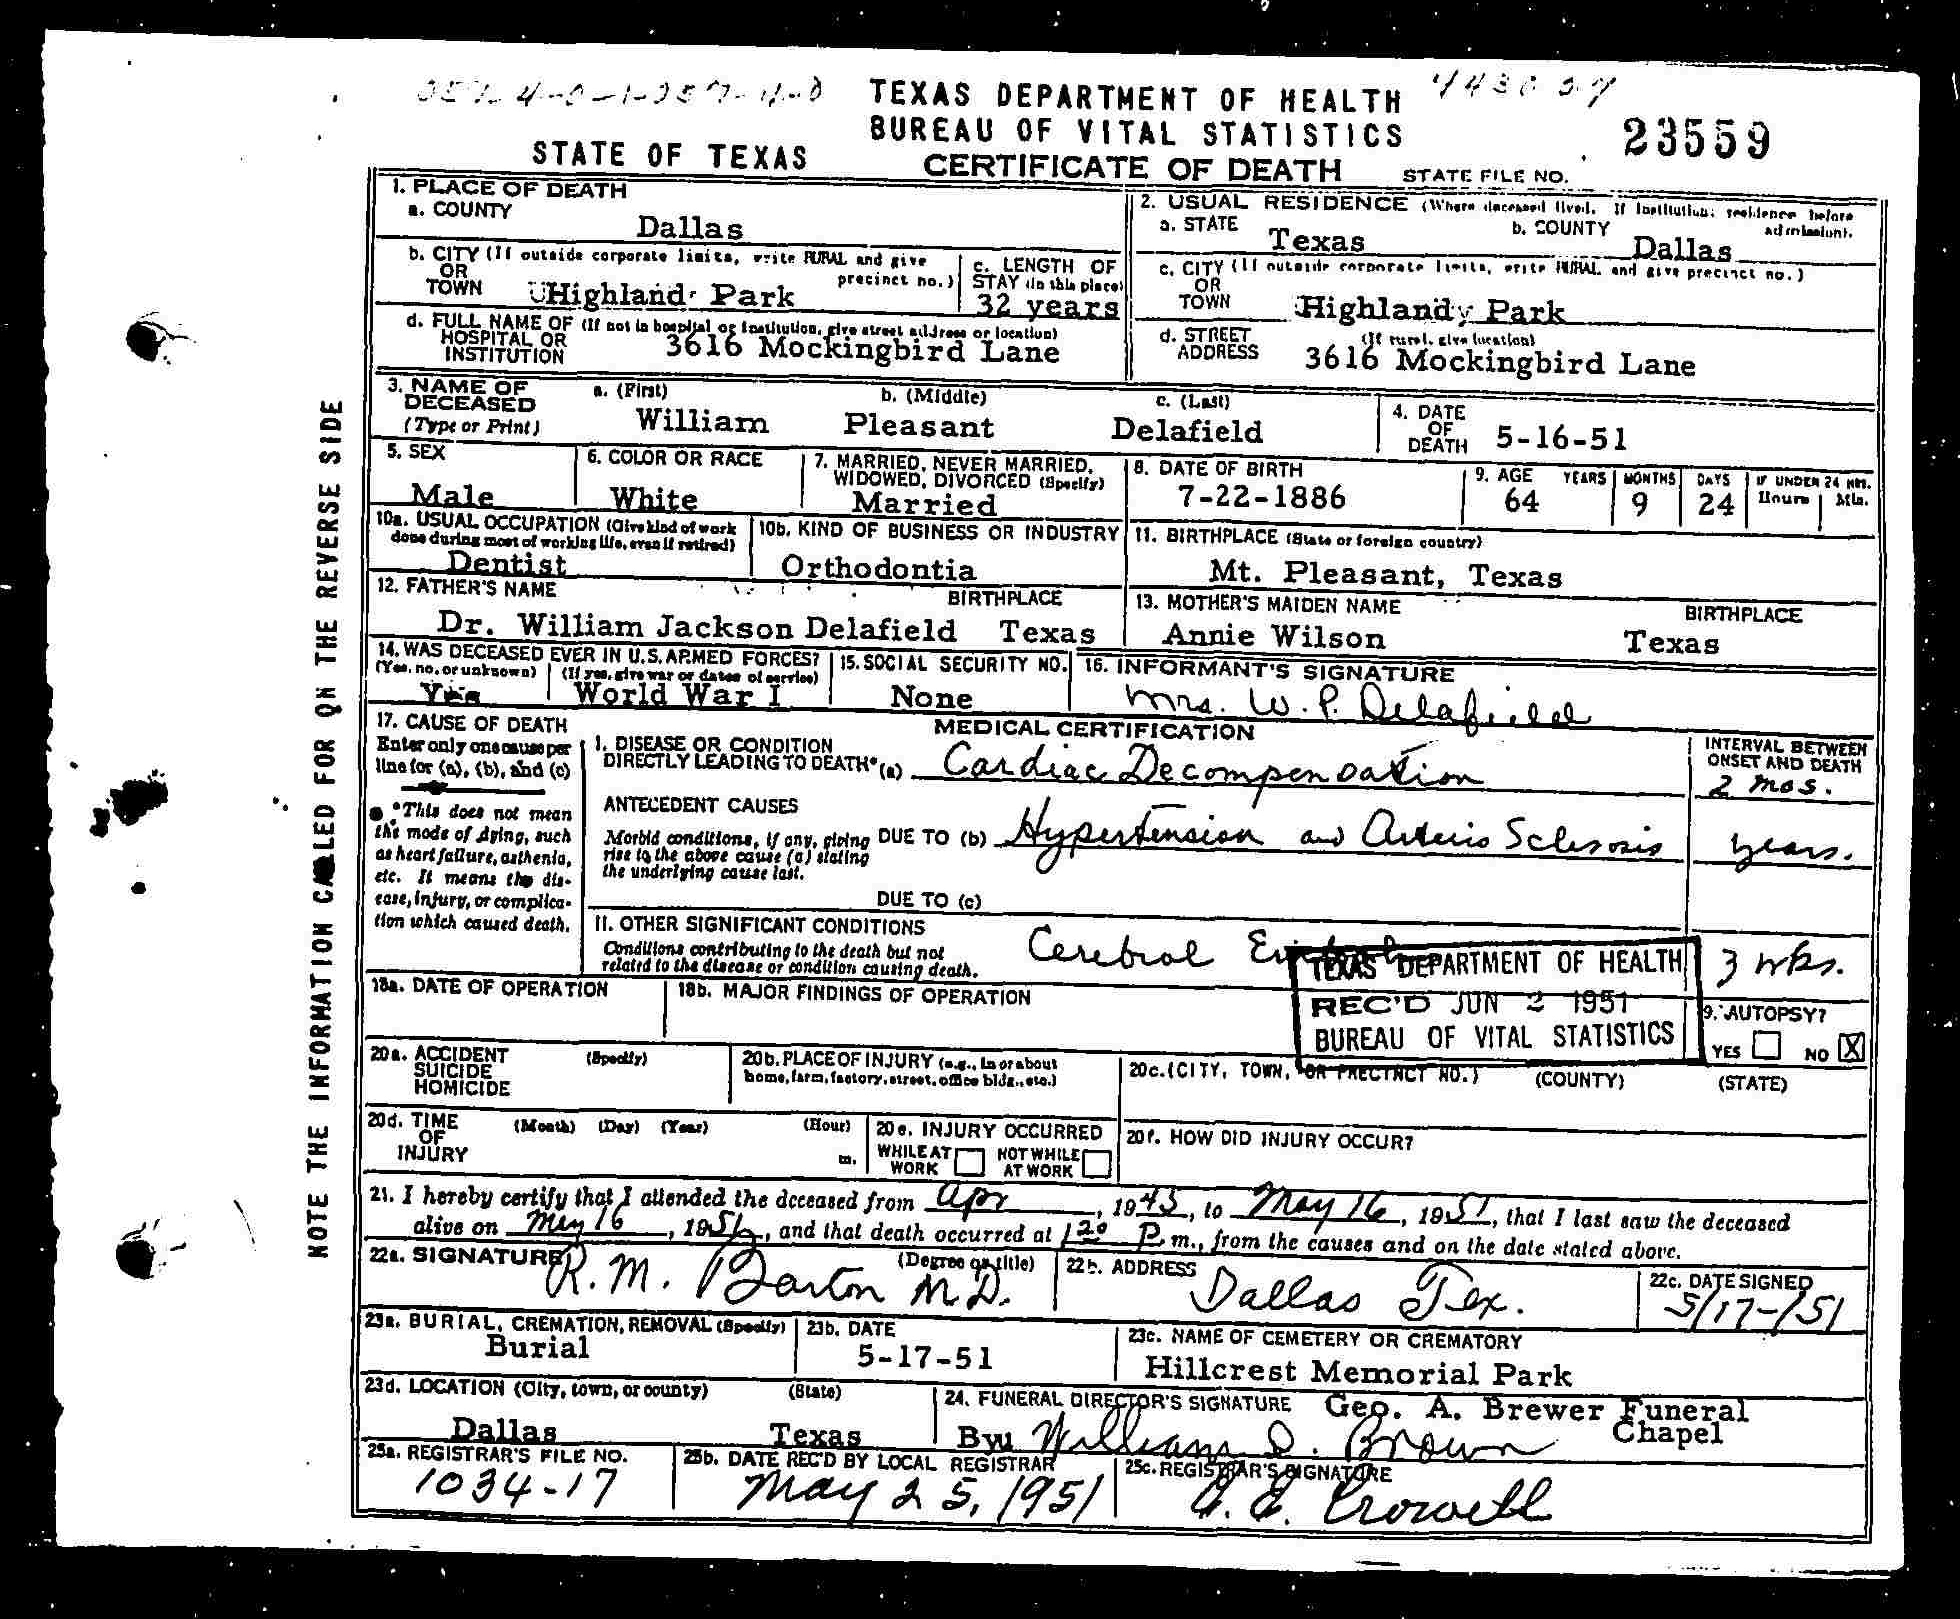 TEXAS DEPARTMENT OF HEALTH
BUREAU OF VITAL STATISTICS
23559
STATE OF TEXAS
CERTIFICATE OF DEATH
STATE FILE NO.
1. PLACE OF DEATH
a. COUNTY
Dallas
2. USUAL RESIDENCE (Where deceased lived. If institution: residence before admission).
a. STATE Texas b. COUNTY Dallas
b. CITY (If outside corporate limits, write RURAL and give precinct no.)
OR
TOWN Highland Park
c. LENGTH OF
STAY (in this place)
32 years
c. CITY (If outside corporate limits, write RURAL and give precinct no.)
OR
TOWN Highland Park
d. FULL NAME OF (If not in hospital or institution, give street address or location)
HOSPITAL OR
INSTITUTION 3616 Mockingbird Lane
d. STREET (If rural, give location)
ADDRESS 3616 Mockingbird Lane
3. NAME OF
DECEASED
(Type or Print)
a. (First) b. (Middle) c. (Last)
William Pleasant Delafield
4. DATE
OF
DEATH 5-16-51
5. SEX
Male
6. COLOR OR RACE
White
7. MARRIED, NEVER MARRIED,
WIDOWED, DIVORCED (Specify)
Married
8. DATE OF BIRTH
7-22-1886
9. AGE YEARS MONTHS DAYS IF UNDER 24 HRS.
64 9 24 Hours Min.
10a. USUAL OCCUPATION (Give kind of work
done during most of working life, even if retired)
Dentist
10b. KIND OF BUSINESS OR INDUSTRY
Orthodontia
11. BIRTHPLACE (State or foreign country)
Mt. Pleasant, Texas
12. FATHER'S NAME BIRTHPLACE
Dr. William Jackson Delafield Texas
13. MOTHER'S MAIDEN NAME BIRTHPLACE
Annie Wilson Texas
14. WAS DECEASED EVER IN U.S. ARMED FORCES?
(Yes, no, or unknown) (If yes, give war or dates of service)
Yes World War I
15. SOCIAL SECURITY NO.
None
16. INFORMANT'S SIGNATURE
Mrs. W. P. Delafield
17. CAUSE OF DEATH
Enter only one cause per
line for (a), (b), and (c)
*This does not mean
the mode of dying, such
as heart failure, asthenia,
etc. It means the dis-
ease, injury, or complica-
tion which caused death.
MEDICAL CERTIFICATION
INTERVAL BETWEEN
ONSET AND DEATH
I. DISEASE OR CONDITION
DIRECTLY LEADING TO DEATH* (a) Cardiac Decompensation 2 mos.
ANTECEDENT CAUSES
Morbid conditions, if any, giving
rise to the above cause (a) stating
the underlying cause last.
DUE TO (b) Hypertension and Arterio Sclerosis years.
DUE TO (c)
II. OTHER SIGNIFICANT CONDITIONS
Conditions contributing to the death but not
related to the disease or condition causing death.
Cerebral 3 wks.
TEXAS DEPARTMENT OF HEALTH
REC'D JUN 2 1951
BUREAU OF VITAL STATISTICS
18a. DATE OF OPERATION
18b. MAJOR FINDINGS OF OPERATION
9. AUTOPSY?
YES NO X
20a. ACCIDENT (Specify)
SUICIDE
HOMICIDE
20b. PLACE OF INJURY (e.g., in or about
home, farm, factory, street, office bldg., etc.)
20c. (CITY, TOWN, OR PRECINCT NO.) (COUNTY) (STATE)
20d. TIME (Month) (Day) (Year) (Hour)
OF
INJURY m.
20e. INJURY OCCURRED
WHILE AT
WORK
NOT WHILE
AT WORK
20f. HOW DID INJURY OCCUR?
21. I hereby certify that I attended the deceased from Apr, 1943, to May 16, 1951, that I last saw the deceased
alive on May 16, 1951, and that death occurred at 1 20 P.m., from the causes and on the date stated above.
22a. SIGNATURE (Degree or title)
R. M. Barton M.D.
22b. ADDRESS
Dallas Tex.
22c. DATE SIGNED
5/17-/51
23a. BURIAL, CREMATION, REMOVAL (Specify)
Burial
23b. DATE
5-17-51
23c. NAME OF CEMETERY OR CREMATORY
Hillcrest Memorial Park
23d. LOCATION (City, town, or county) (State)
Dallas Texas
24. FUNERAL DIRECTOR'S SIGNATURE Geo. A. Brewer Funeral Chapel
By William D. Brown
25a. REGISTRAR'S FILE NO.
1034-17
25b. DATE REC'D BY LOCAL REGISTRAR
May 25, 1951
25c. REGISTRAR'S SIGNATURE
Crowell
NOTE THE INFORMATION CALLED FOR ON THE REVERSE SIDE